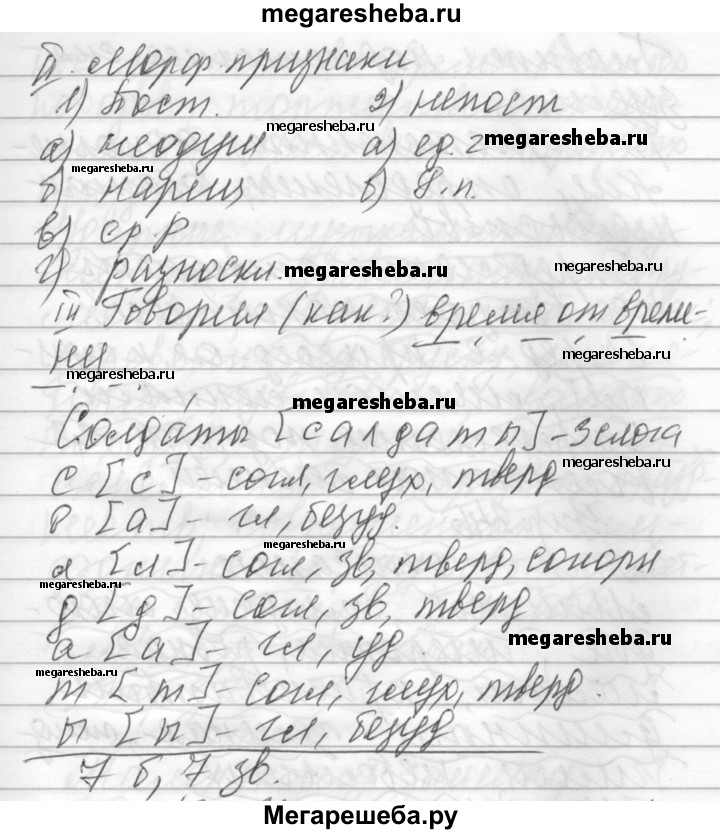 megaresheba.ru
II. Морф. признаки
1) Пост. 2) непост
megaresheba.ru
а) неодуш а) ед. ч megaresheba.ru
megaresheba.ru
б) нариц б)
в) ср. р
г) разноскл. megaresheba.ru megaresheba.ru
III Говорил (как?) время от време-
megaresheba.ru
ни
megaresheba.ru
megaresheba.ru
Солдаты [салдаты] - 3 слога
megaresheba.ru
с [с] - согл, глух, тверд
о [а] - гл, безуд.
megaresheba.ru
л [л] - согл, зв, тверд, сонорн
megaresheba.ru
д [д] - согл, зв, тверд
а [а] - гл, уд. megaresheba.ru
megaresheba.ru
т [т] - согл, глух, тверд.
ы [ы] - гл, безуд
7 б, 7 зв.
Мегарешеба.ру